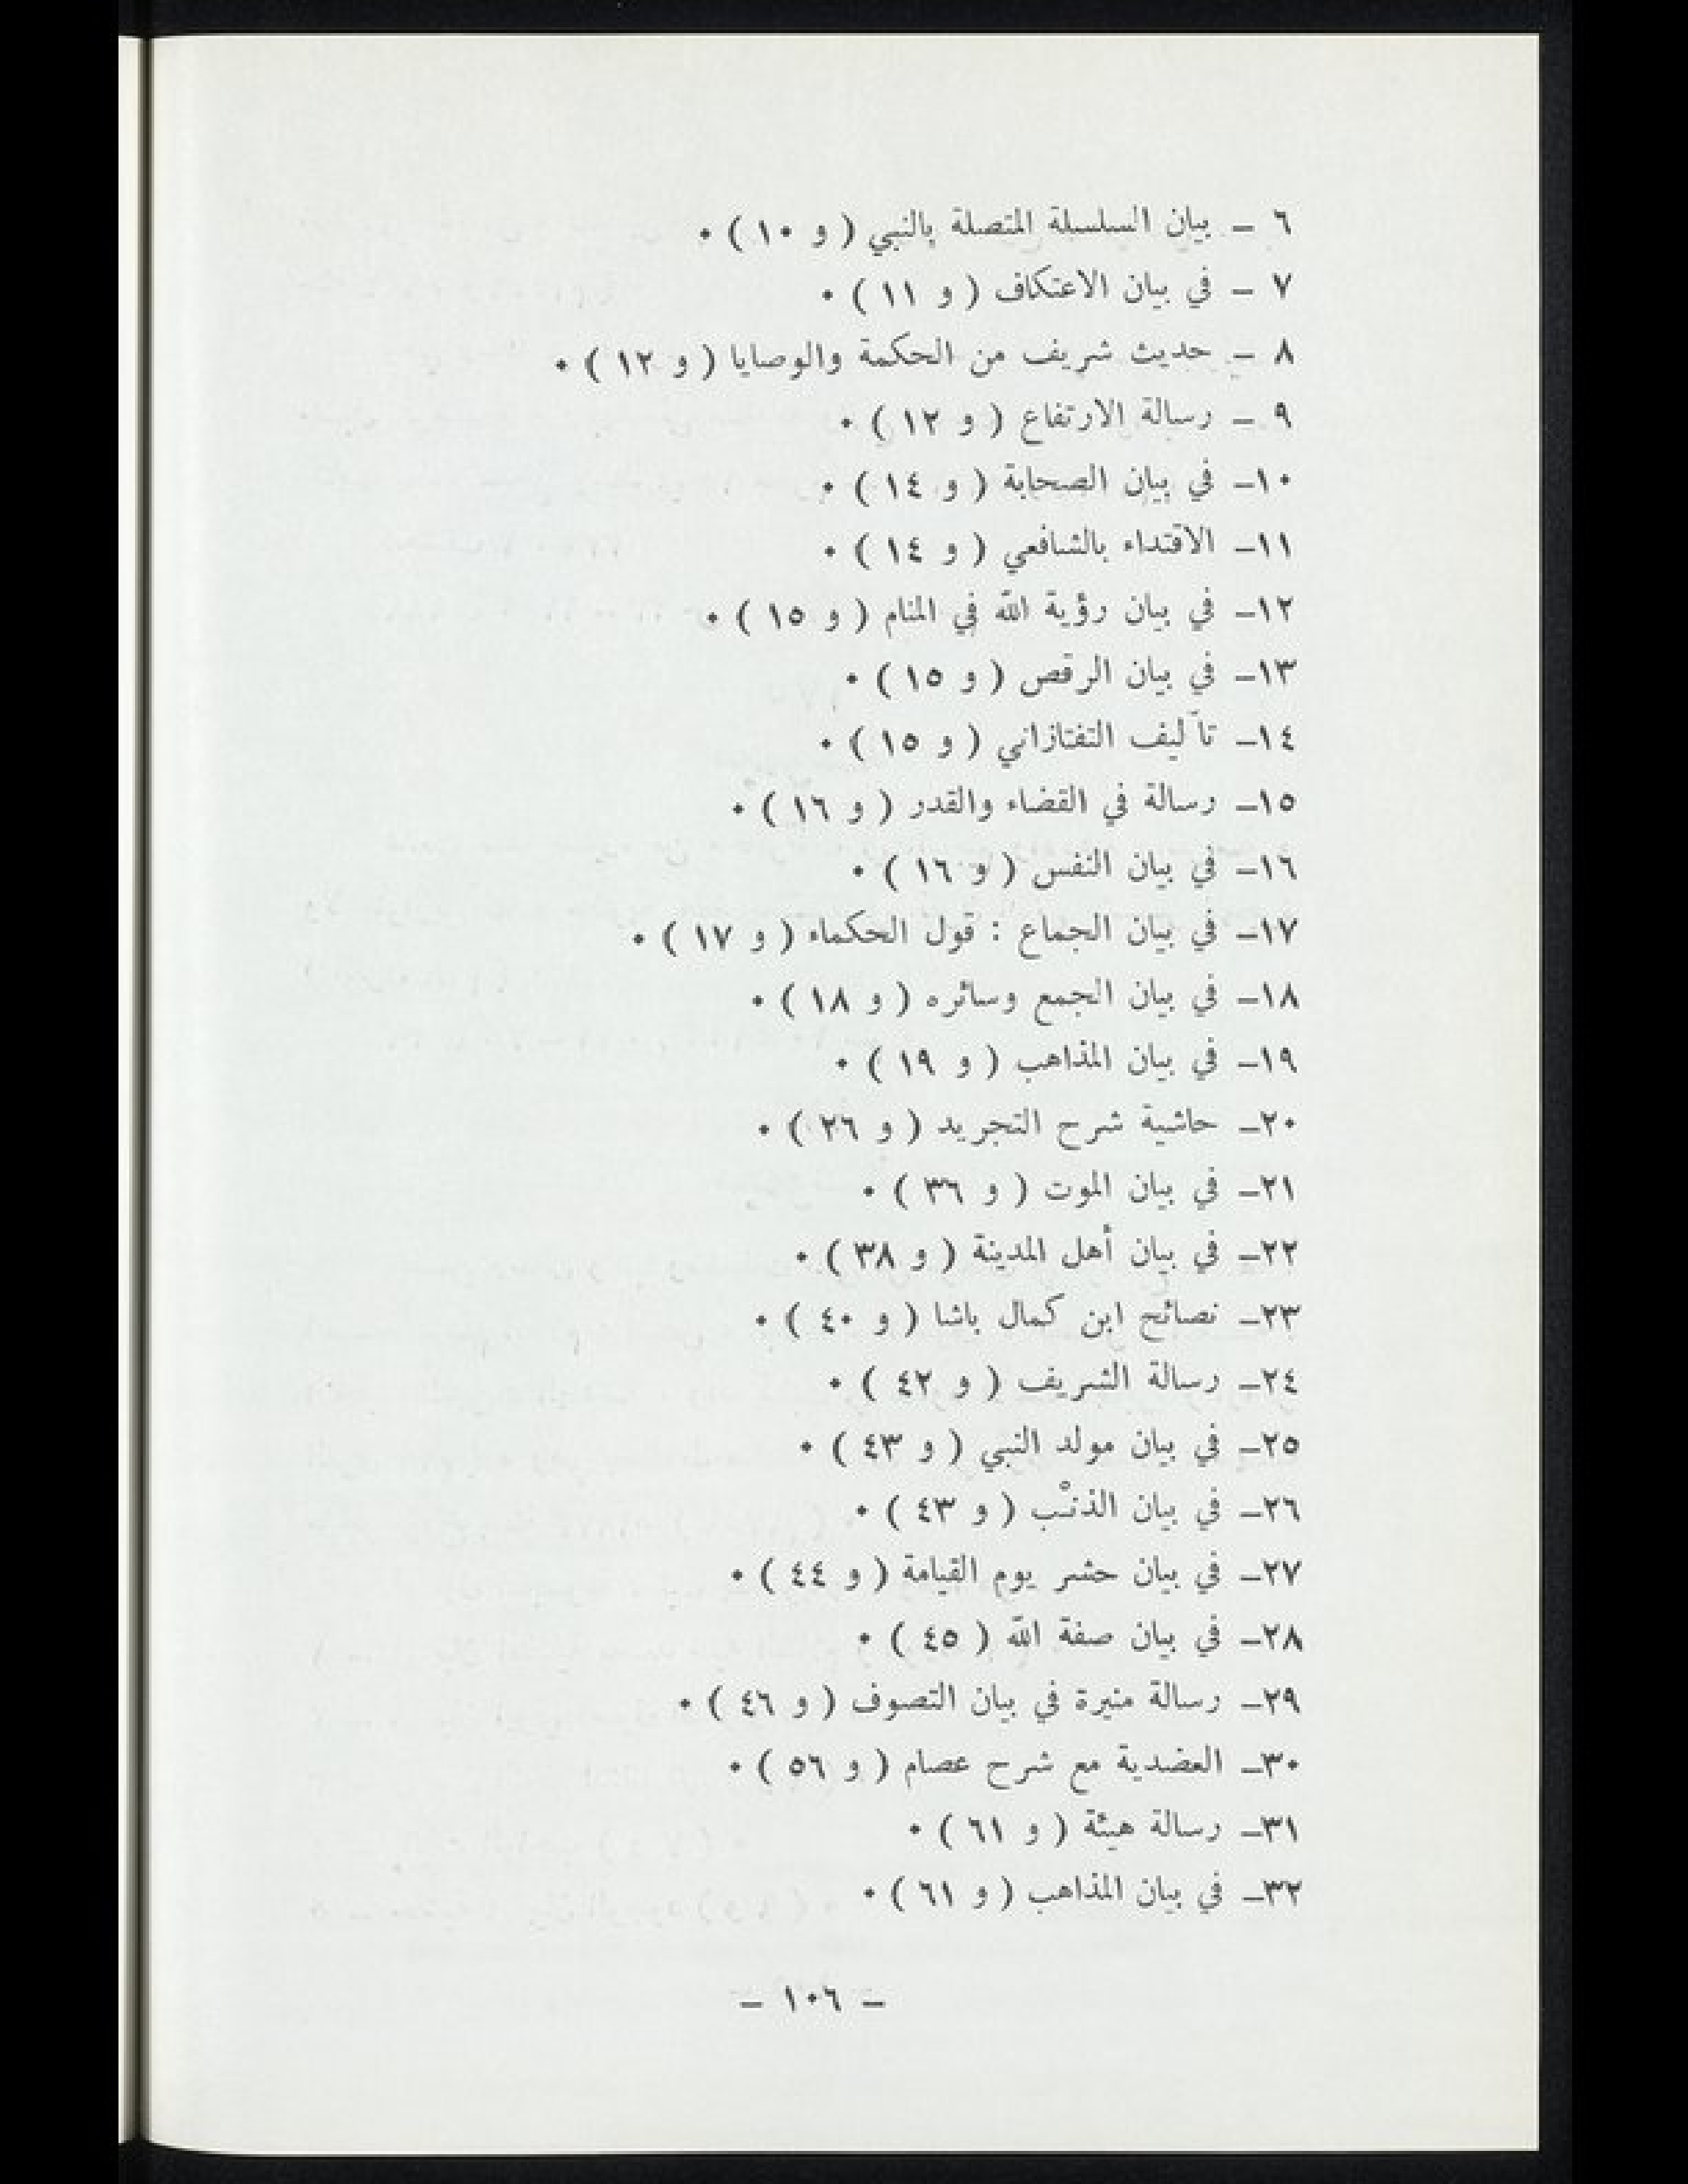 ٦ – بيان السلسلة المتصلة بالنبي ( و ١٠ ) ٠
٧ – في بيان الاعتكاف ( و ١١ ) ٠
٨ – حديث شريف من الحكمة والوصايا ( و ١٢ ) ٠
٩ – رسالة الارتفاع ( و ١٢ ) ٠
١٠– في بيان الصحابة ( و ١٤ ) ٠
١١– الاقتداء بالشافعي ( و ١٤ ) ٠
١٢– في بيان رؤية الله في المنام ( و ١٥ ) ٠
١٣– في بيان الرقص ( و ١٥ ) ٠
١٤– تآليف التفتازاني ( و ١٥ ) ٠
١٥– رسالة في القضاء والقدر ( و ١٦ ) ٠
١٦– في بيان النفس ( و ١٦ ) ٠
١٧– في بيان الجماع : قول الحكماء ( و ١٧ ) ٠
١٨– في بيان الجمع وسائره ( و ١٨ ) ٠
١٩– في بيان المذاهب ( و ١٩ ) ٠
٢٠– حاشية شرح التجريد ( و ٢٦ ) ٠
٢١– في بيان الموت ( و ٣٦ ) ٠
٢٢– في بيان أهل المدينة ( و ٣٨ ) ٠
٢٣– نصائح ابن كمال باشا ( و ٤٠ ) ٠
٢٤– رسالة الشريف ( و ٤٢ ) ٠
٢٥– في بيان مولد النبي ( و ٤٣ ) ٠
٢٦– في بيان الذنْب ( و ٤٣ ) ٠
٢٧– في بيان حشر يوم القيامة ( و ٤٤ ) ٠
٢٨– في بيان صفة الله ( ٤٥ ) ٠
٢٩– رسالة منيرة في بيان التصوف ( و ٤٦ ) ٠
٣٠– العضدية مع شرح عصام ( و ٥٦ ) ٠
٣١– رسالة هيئة ( و ٦١ ) ٠
٣٢– في بيان المذاهب ( و ٦١ ) ٠
– ١٠٦ –